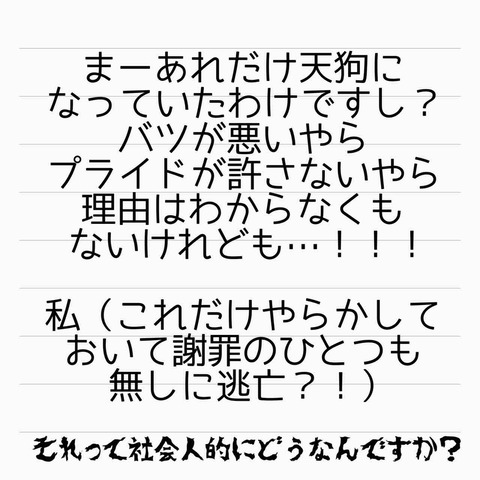 まーあれだけ天狗に
なっていたわけですし？
バツが悪いやら
プライドが許さないやら
理由はわからなくも
ないけれども…！！！
私（これだけやらかして
おいて謝罪のひとつも
無しに逃亡？！）
それって社会人的にどうなんですか？